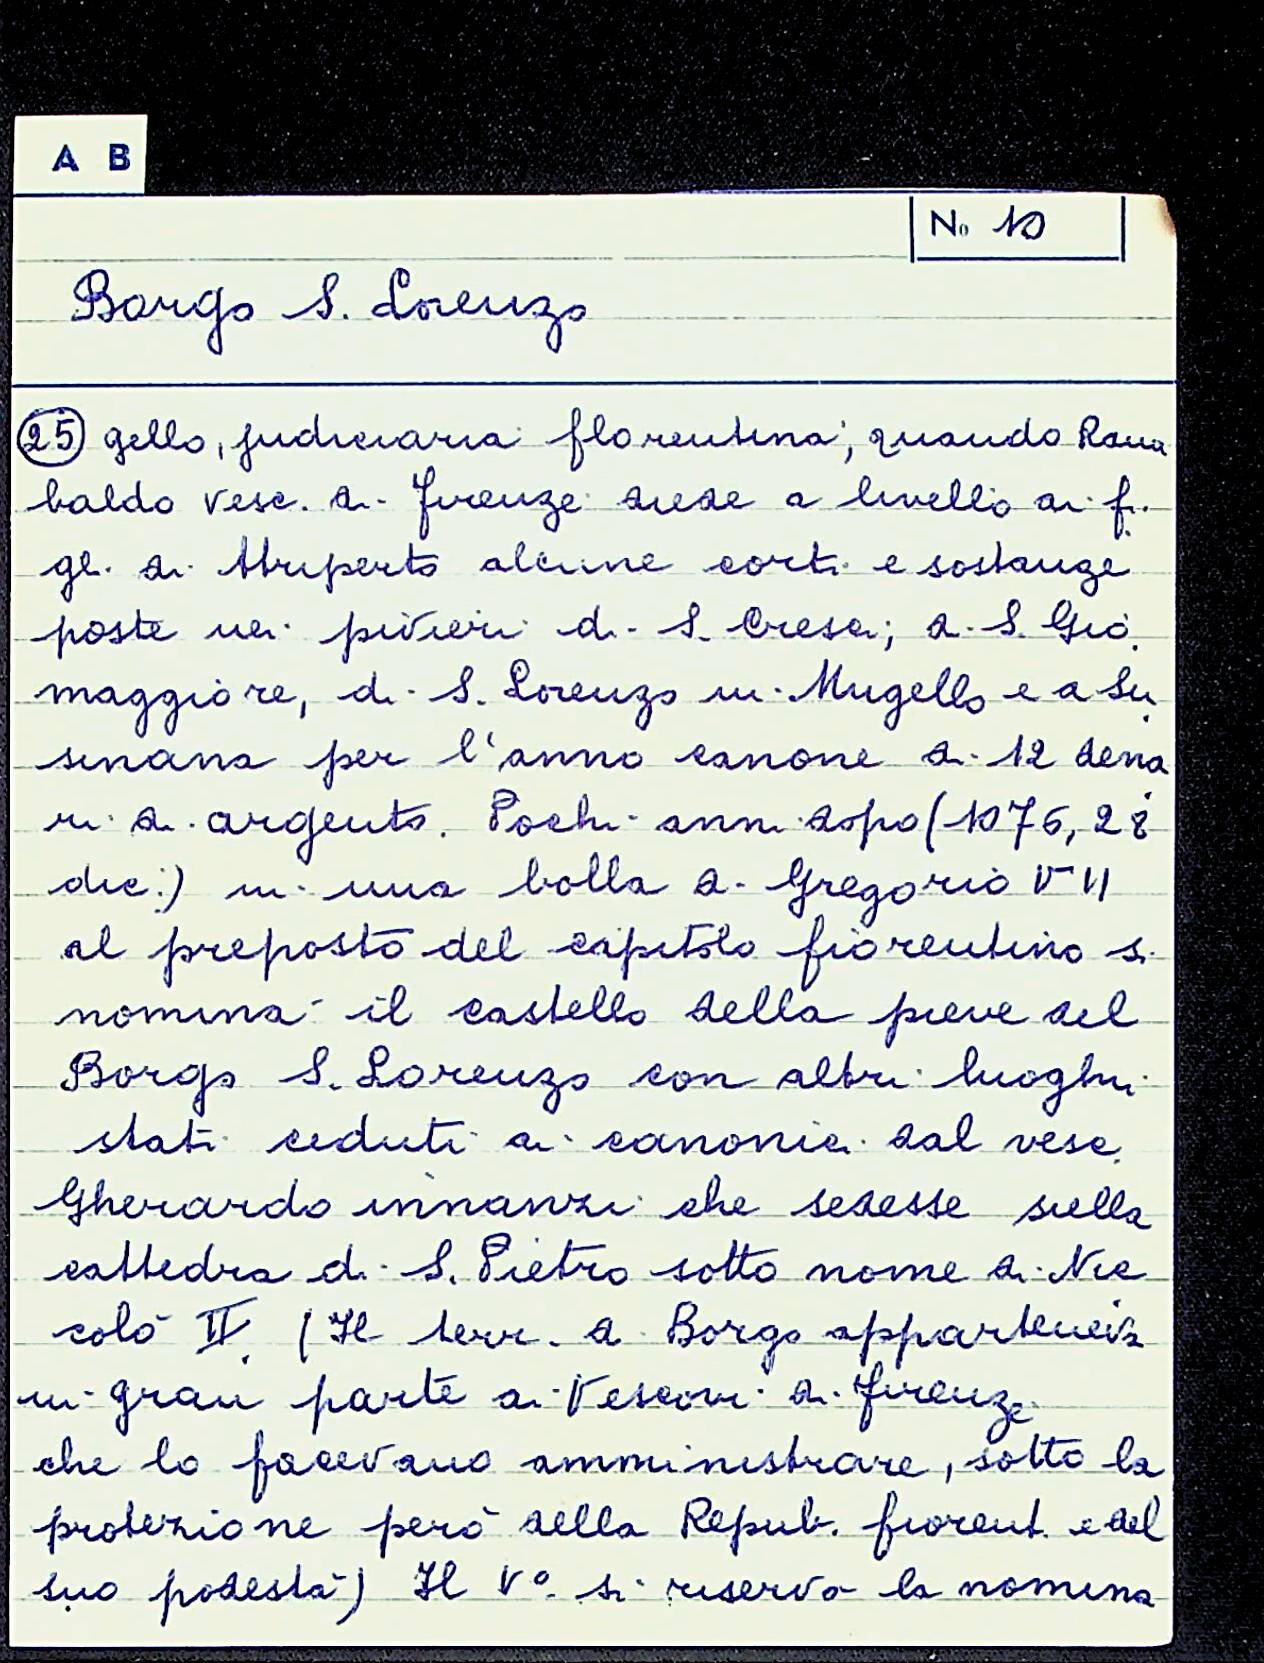 A B
No 10
Borgo S. Lorenzo
25 gello, judiciaria florentina, quando Ram
baldo Vesc. di Firenze diede a livello ai fi.
gli di Atriperto alcune corti e sostanze
poste nei pivieri di S. Cresci; di S. Gio.
maggiore, di S. Lorenzo in Mugello e a Su
sinana per l'anno canone di 12 dena
ri di argento. Pochi anni dopo (1076, 28
dic.) in una bolla di Gregorio VII
al preposto del capitolo fiorentino si
nomina il castello della pieve del
Borgo S. Lorenzo con altri luoghi
stati ceduti ai canonici dal vesc.
Gherardo innanzi che sedesse sulla
cattedra di S. Pietro sotto nome di Nic
colò II. (Il terr. di Borgo apparteneva
in gran parte ai Vescovi di Firenze
che lo facevano amministrare, sotto la
protezione però della Repub. fiorent. e del
suo podestà) Il Vº. si riservò la nomina